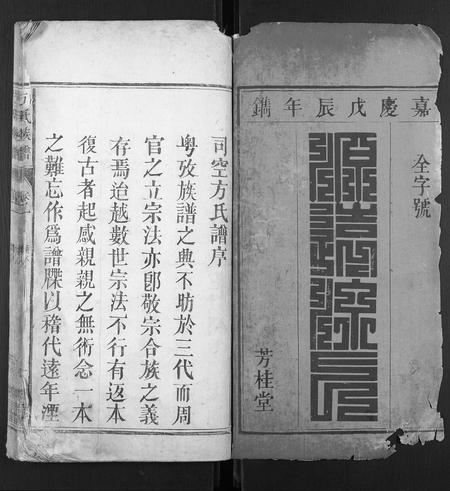 嘉慶戊辰年鐫
全字號
源遠流長
芳桂堂
司空方氏譜序
粵攷族譜之典不昉於三代而周
官之立宗法亦卽敬宗合族之義
存焉迨越數世宗法不行有返本
復古者起感親親之無術念一本
之難忘作爲譜牒以稽代遠年湮
方氏族譜